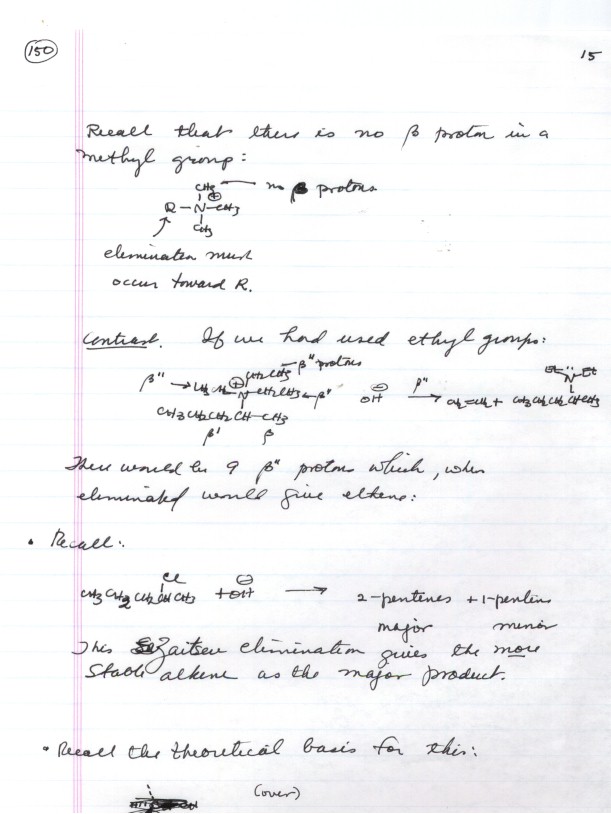 150
15
Recall that there is no β proton in a
methyl group:
CH3 — no β protons
R — N — CH3
⊕
CH3
elimination must
occur toward R.
Contrast. If we had used ethyl groups:
CH2CH3 – β" protons
β" → ⊕ N – CH2CH3 ← β"
CH3CH2CH2CH–CH3
β' β
⊖
OH
β"
→ CH2=CH2 + CH3CH2CH2CHCH3
Et N̈ Et
There would be 9 β" protons which, when
eliminated would give ethene:
• Recall:
Cl
CH3CH2CH2CHCH3 + ⊖OH → 2-pentenes + 1-pentene
major minor
This Zaitsev elimination gives the more
stable alkene as the major product.
• Recall the theoretical basis for this:
(over)